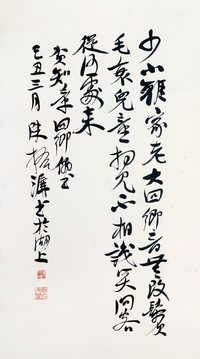 少小離家老大回鄉音無改鬢
毛衰兒童相見不相識笑問客
從何處来
賀知章回鄉偶書
己丑三月陳振濂書於湖上